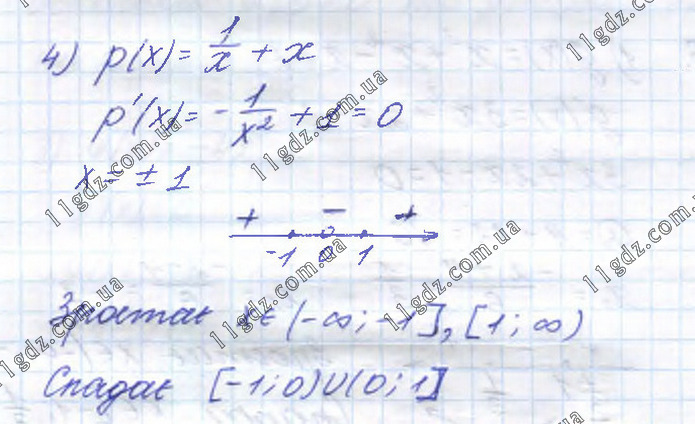 4) p(x) = 1/x + x
p'(x) = -1/x² + 1 = 0
x = ± 1
+ − +
-1 0 1
Зростає x ∈ (-∞; -1], [1; ∞)
Спадає [-1; 0) U (0; 1]
11gdz.com.ua
11gdz.com.ua
11gdz.com.ua
11gdz.com.ua
11gdz.com.ua
11gdz.com.ua
11gdz.com.ua